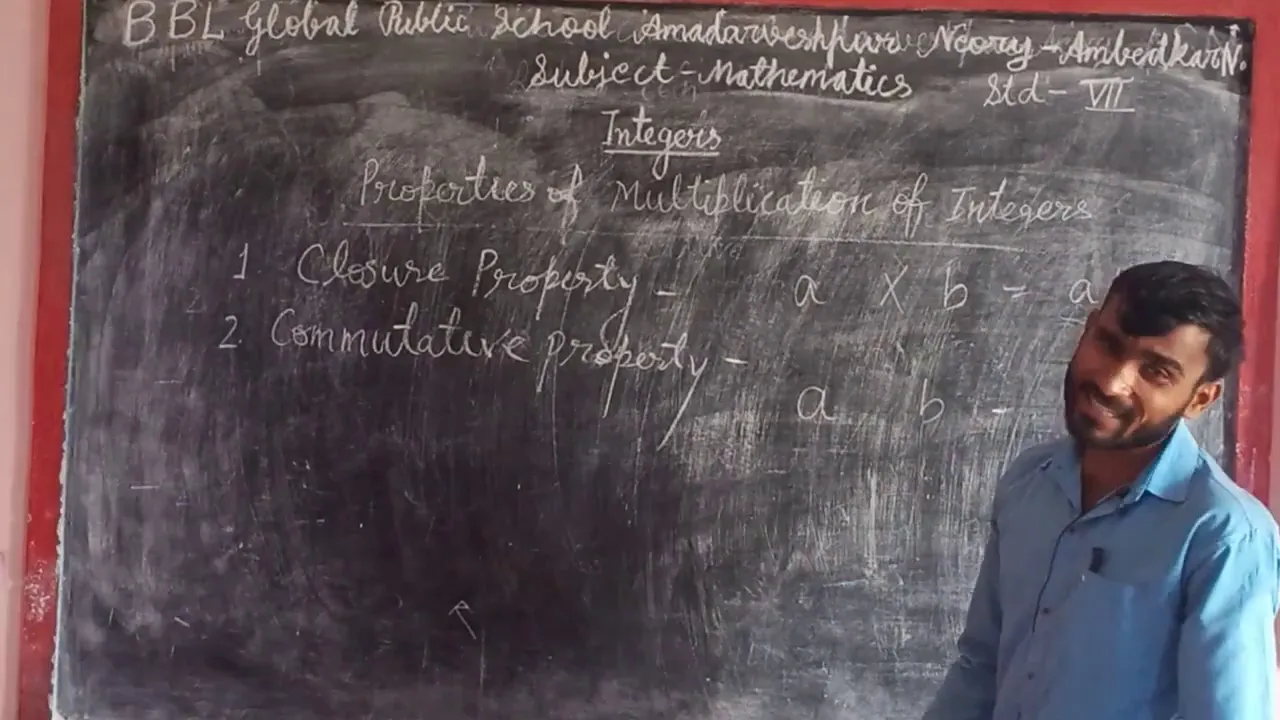 BBL Global Public School Amadarveshpur Neory - Ambedkar N.
Subject - Mathematics Std - VII
Integers
Properties of Multiplication of Integers
1 Closure Property - a X b = a
2. Commutative property -
a b -